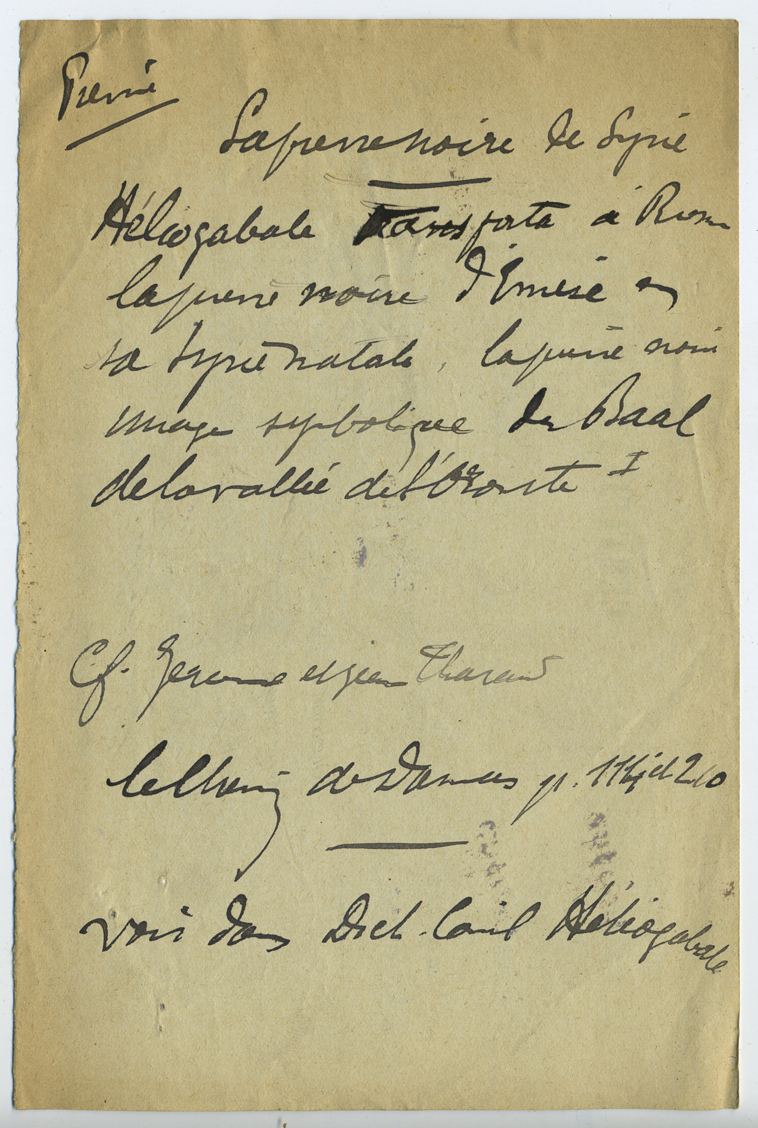 Pierre
La pierre noire de Syrie
Héliogabale transporta à Rome
la pierre noire d'Émèse en
sa Syrie natale, la pierre noire
image symbolique du Baal
de la vallée de l'Oronte I
Cf. Jerome et Jean Tharaud
le Chemin de Damas p. 114 et 210
voir dans Dict. Héliogabale